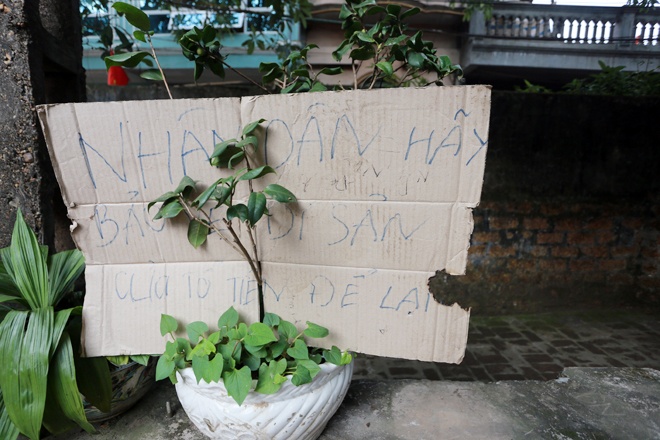 NHÂN DÂN HÃY
BẢO DI SẢN
CỦA TỔ TIÊN ĐỂ LẠI